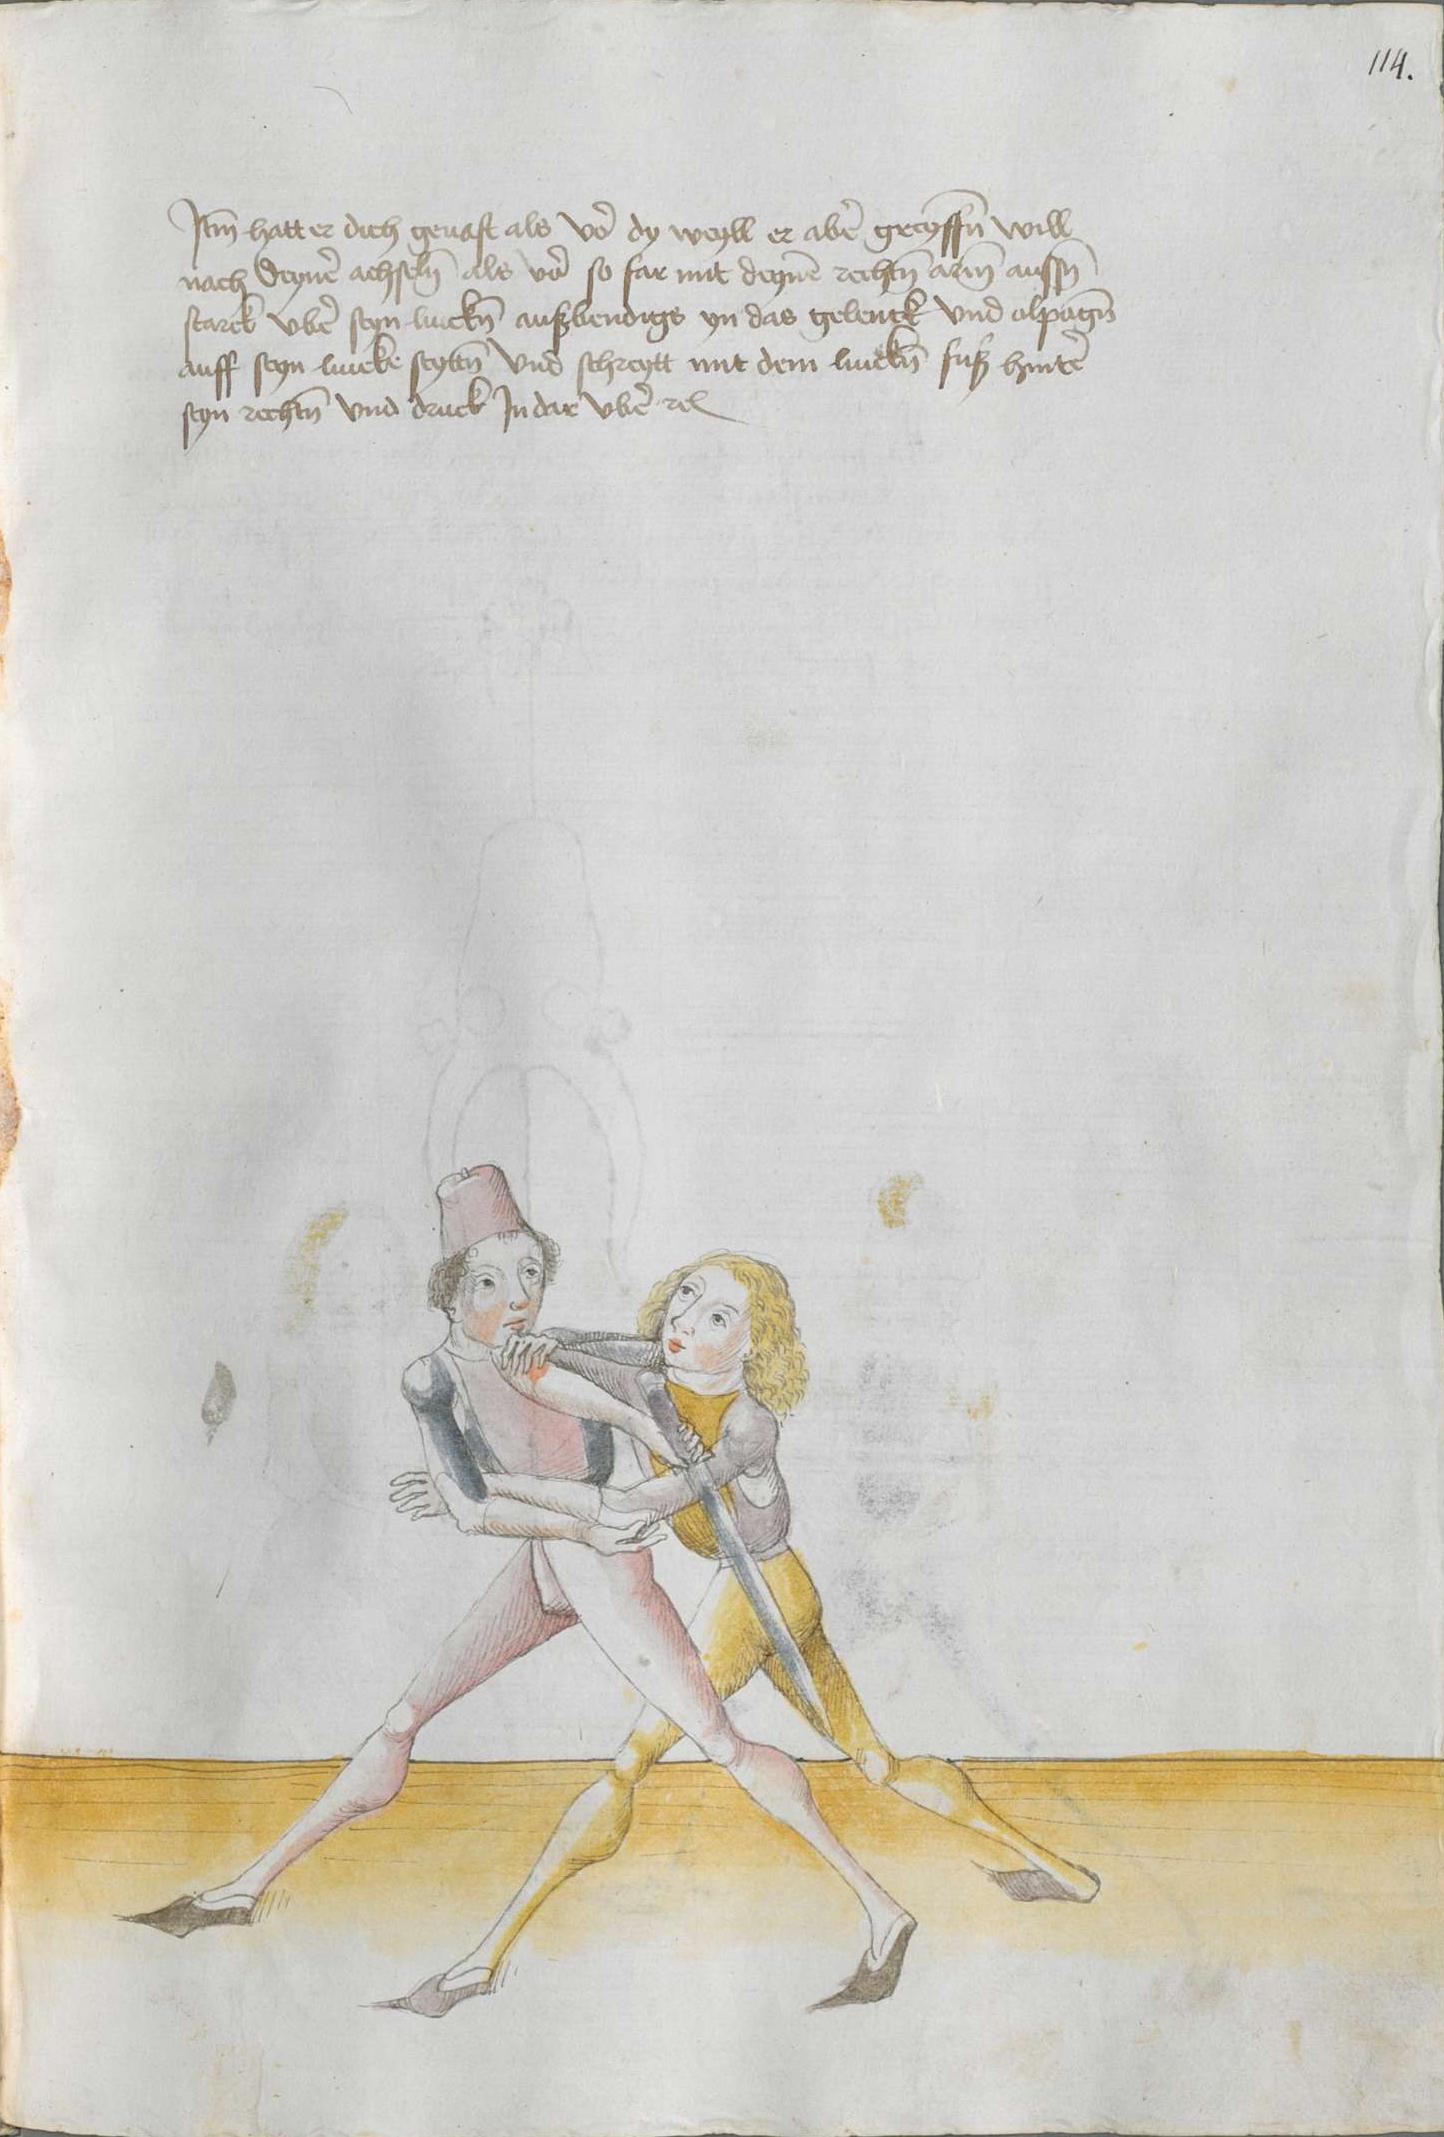 114.
Itm̄ hatt er dich gevast als vō dy weyll er abē greyffn̄ will
nach deynē achseln̄ als vō so far mit deynē rechtn̄ arm̄ aussn̄
starck vbē seyn linckn̄ außbendigs yn das gelenck vnd
auff seyn lincke seyttn̄ vnd schreytt mit dem linckn̄ fuß hintē
seyn rechtn̄ vnd druck In dar vbē